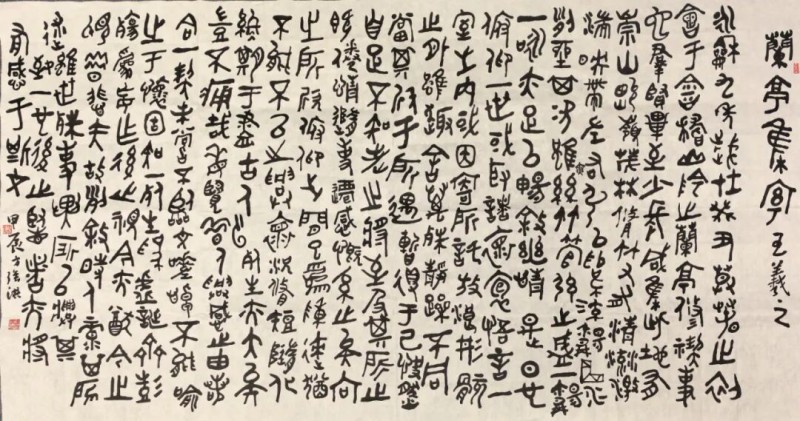 蘭亭集序 王羲之
永和九年歲在癸丑暮春之初
會于會稽山陰之蘭亭修禊事
也群賢畢至少長咸集此地有
崇山峻嶺茂林修竹又有清流激
湍映帶左右引以為流觴曲水
列坐其次雖無絲竹管弦之盛一觴
一詠亦足以暢敘幽情是日也
俯仰一世或取諸懷抱悟言一
室之內或因寄所託放浪形骸
之外雖趣舍萬殊靜躁不同
當其欣于所遇暫得于己快然
自足不知老之將至及其所之
既倦情隨事遷感慨係之矣向
之所欣俯仰之間已為陳迹猶
不能不以之興懷況修短隨化
終期于盡古人云死生亦大矣
豈不痛哉每覽昔人興感之由若
合一契未嘗不臨文嗟悼不能喻
之于懷固知一死生為虛誕齊彭
殤為妄作後之視今亦猶今之
視昔悲夫故列敘時人錄其所
述雖世殊事異所以興懷其
致一也後之覽者亦將
有感于斯文